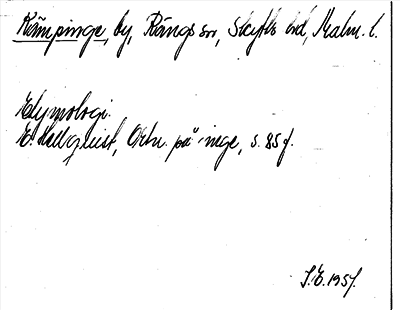 Kämpinge, by, Rängs sn, Skytts hd, Malm. l.
Etymologi.
E. Hellquist, Ortn. på inge, s. 85 f.
S.E. 1957.